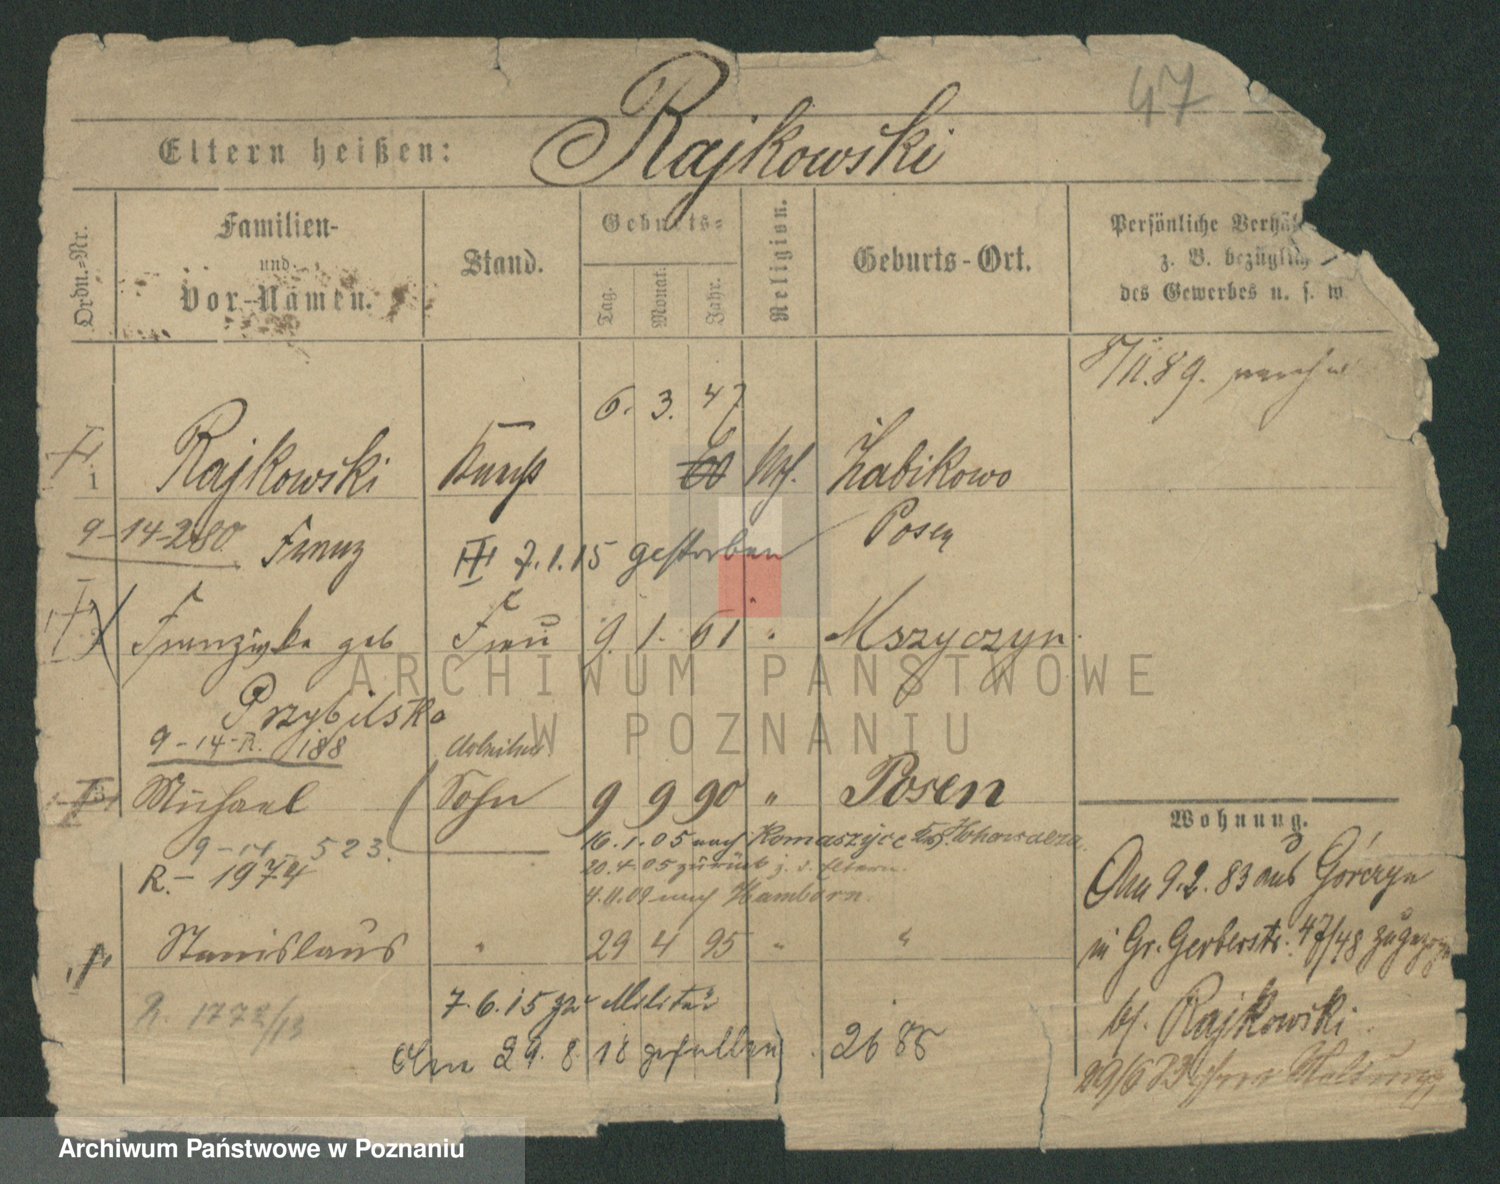 47
Eltern heißen: Rajkowski
Ordn.-Nr.
Familien- und Vor-Namen.
Stand.
Geburts-
Tag. Monat. Jahr.
Religion.
Geburts-Ort.
Persönliche Verhä
z. B. bezüglich
des Gewerbes u. s. w
6. 3. 47
1 Rajkowski 60 Kth. Żabikowo
9-14-280 Franz Posen
7.1.15 gestorben
Franziska geb Frau 9. 1. 61 " Mszyczyn
Przybilska
9-14-R. 188
Michael Sohn 9 9 90 " Posen
9-14 523.
R.- 1974
16.1.05 nach Komaszyce
20.4.05 zurück z. d. Eltern.
4.11.09 nach Hamborn.
Stanislaus " 29 4 95 " "
R. 1772/13
7.6.15 zu Militär
Am 29.8.18 gefallen 2685
Wohnung.
Am 9.2.83 aus Górczyn
in Gr. Gerberstr. 47/48
bf. Rajkowski
ARCHIWUM PAŃSTWOWE
W POZNANIU
Archiwum Państwowe w Poznaniu